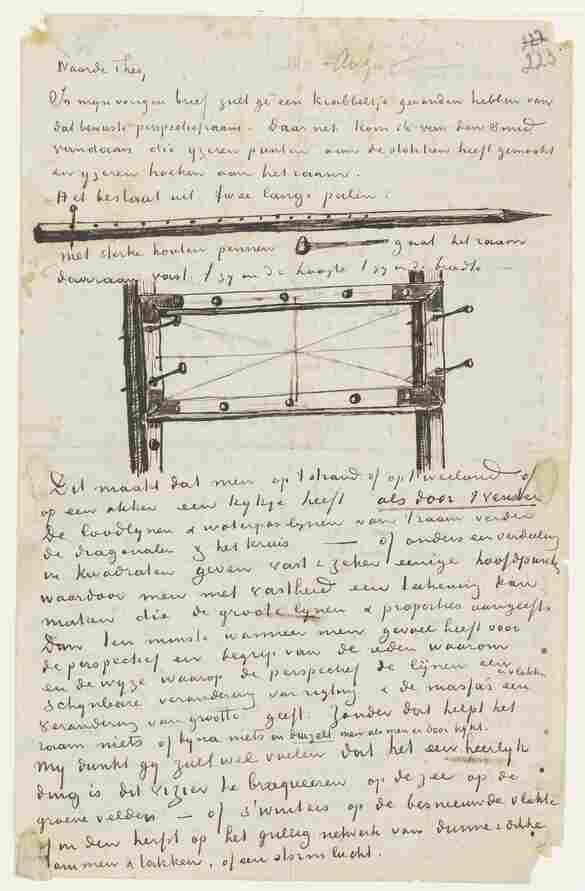 223
Waarde Theo,
In mijn vorigen brief zult ge een krabbeltje gevonden hebben van
dat bewuste perspectiefraam. Daar net kom ik van den smid
vandaan die yzeren punten aan de stokken heeft gemaakt
en yzeren hoeken aan het raam.
Het bestaat uit twee lange palen:
met sterke houten pennen gaat het raam
daaraan vast, 't zy in de hoogte 't zy in de breedte
Dit maakt dat men op 't strand of op 't weiland of
op een akker een kykje heeft als door 't venster
De loodlynen & waterpaslynen van 't raam verder
de diagonalen & het kruis — of anders een verdeeling
in kwadraten geven vast & zeker eenige hoofdpunten
waardoor men met vastheid een teekening kan
maken die de groote lynen & proporties aangeeft
Dan ten minste wanneer men gevoel heeft voor
de perspectief en begrip van de reden waarom
en de wyze waarop de perspectief de lijnen een
schynbare verandering van rigting & de massa's en vlakken een
verandering van grootte geeft. Zonder dat helpt het
raam niets of byna niets en duizelt men als men er door kykt.
My dunkt gy zult wel voelen dat het een heerlyk
ding is dit vizier te braqueeren op de zee op de
groene velden — of s'winters op de besneeuwde vlakte
of in den herfst op het grillig netwerk van dunne & dikke
stammen & takken, of een stormlucht.